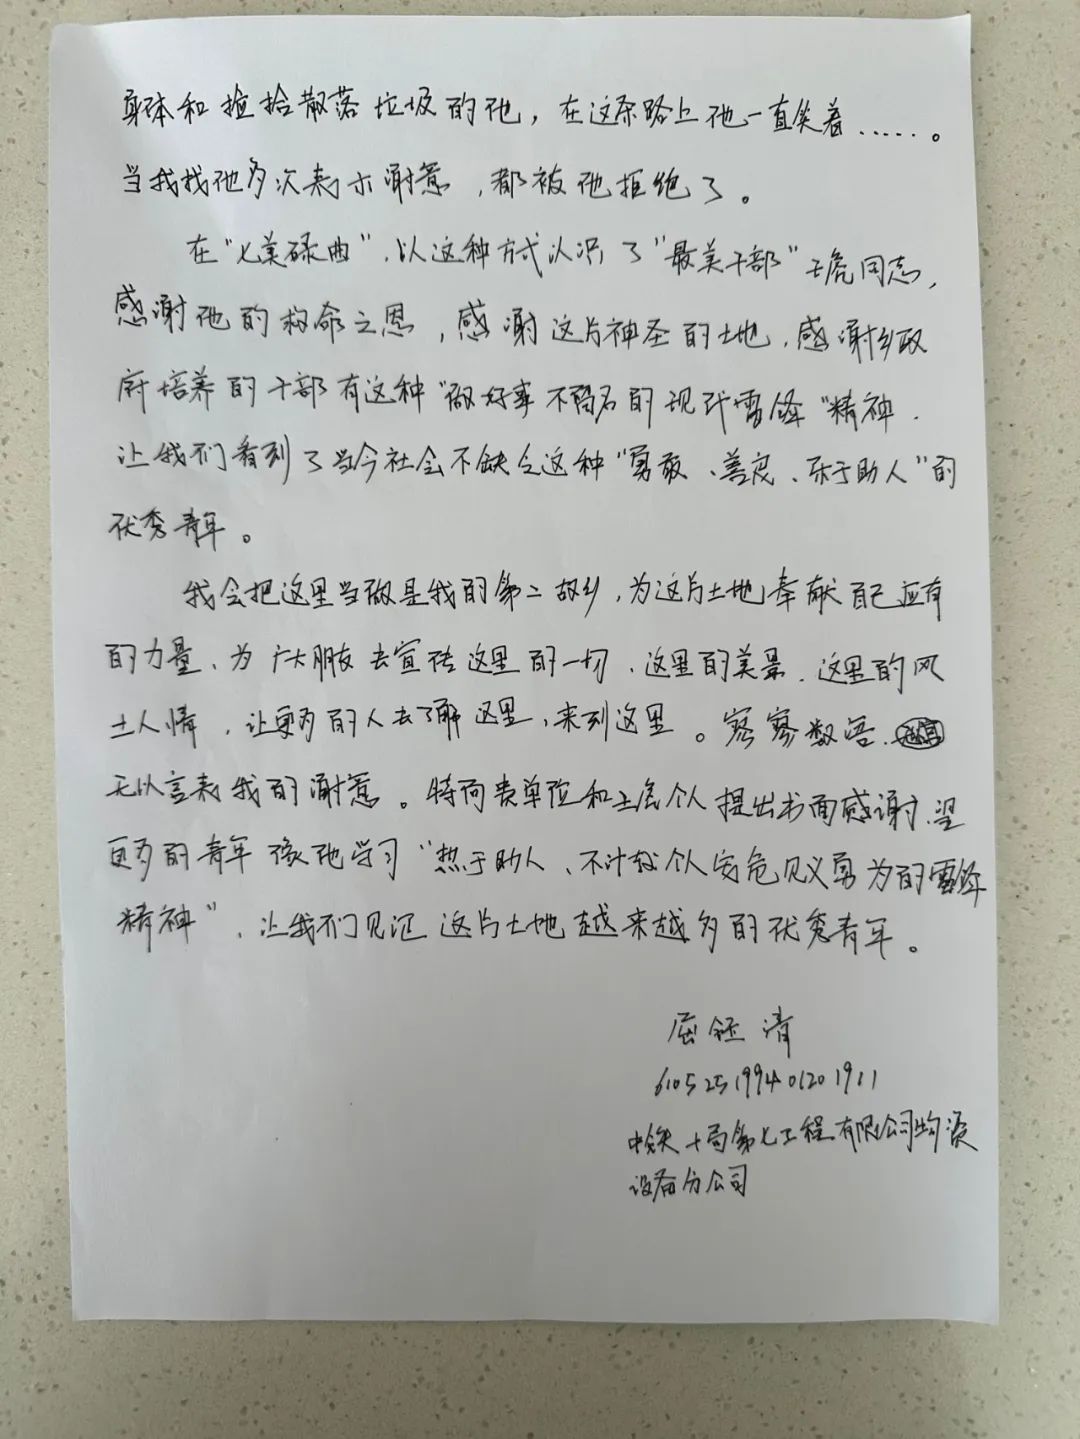 身体和捡拾散落垃圾的他，在这条路上他一直笑着……。
当我找他多次表示谢意，都被他拒绝了。
在“七美碌曲”，以这种方式认识了“最美干部”王虎同志，
感谢他的救命之恩，感谢这片神圣的土地，感谢乡政
府培养的干部有这种“做好事不留名的现代雷锋”精神，
让我们看到了当今社会不缺乏这种“勇敢、善良、乐于助人”的
优秀青年。
我会把这里当做是我的第二故乡，为这片土地奉献自己应有
的力量、为广大朋友去宣传这里的一切、这里的美景、这里的风
土人情，让更多的人去了解这里，来到这里。寥寥数语，
无以言表我的谢意。特向贵单位和王虎个人提出书面感谢，望
更多的青年像他学习“热于助人、不计较个人安危见义勇为的雷锋
精神”，让我们见证这片土地越来越多的优秀青年。
屈钰清
610525199401201911
中铁十局第七工程有限公司物资
设备分公司